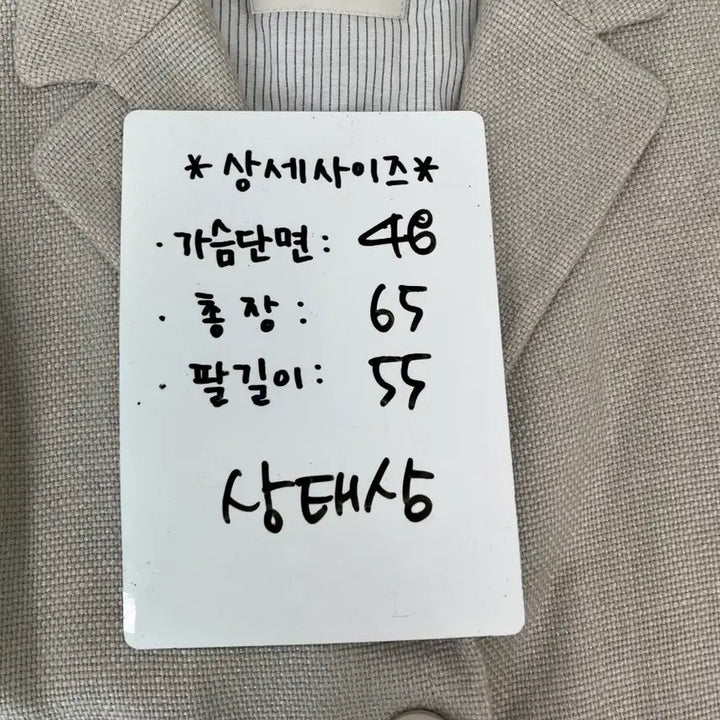 *상세사이즈*
·가슴단면: 46
·총장: 65
·팔길이: 55
상태상